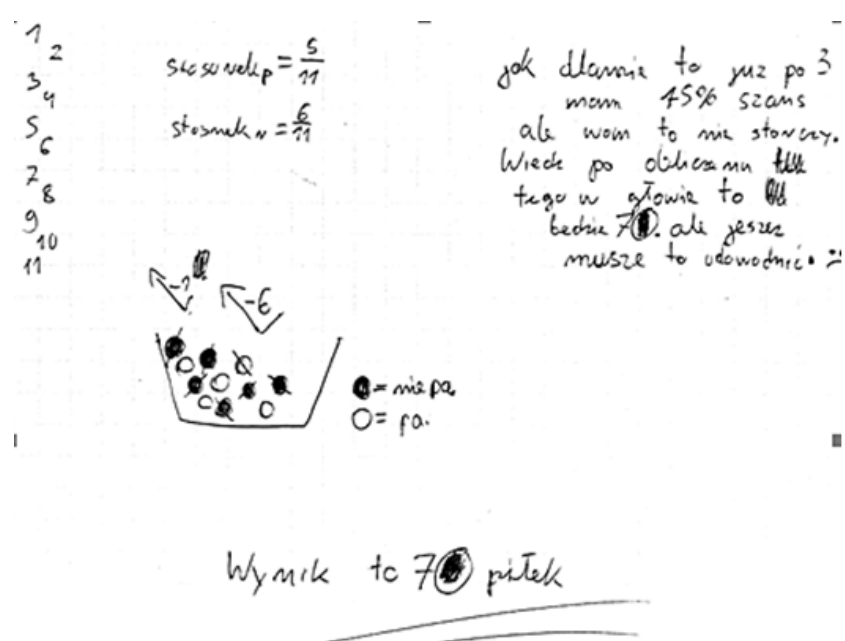 1
2
3
4
5
6
7
8
9
10
11
stosunek p = 5/11
stosnek n = 6/11
jak dlamnie to juz po 3
mam 45% szans
ale wam to nie starczy.
Wiech po obliczeniu
tego w głowie to
bedzie 7. ale jeszcz
musze to udowodnić. :)
-1
-6
= niepa.
= pa.
Wynik to 7 piłek